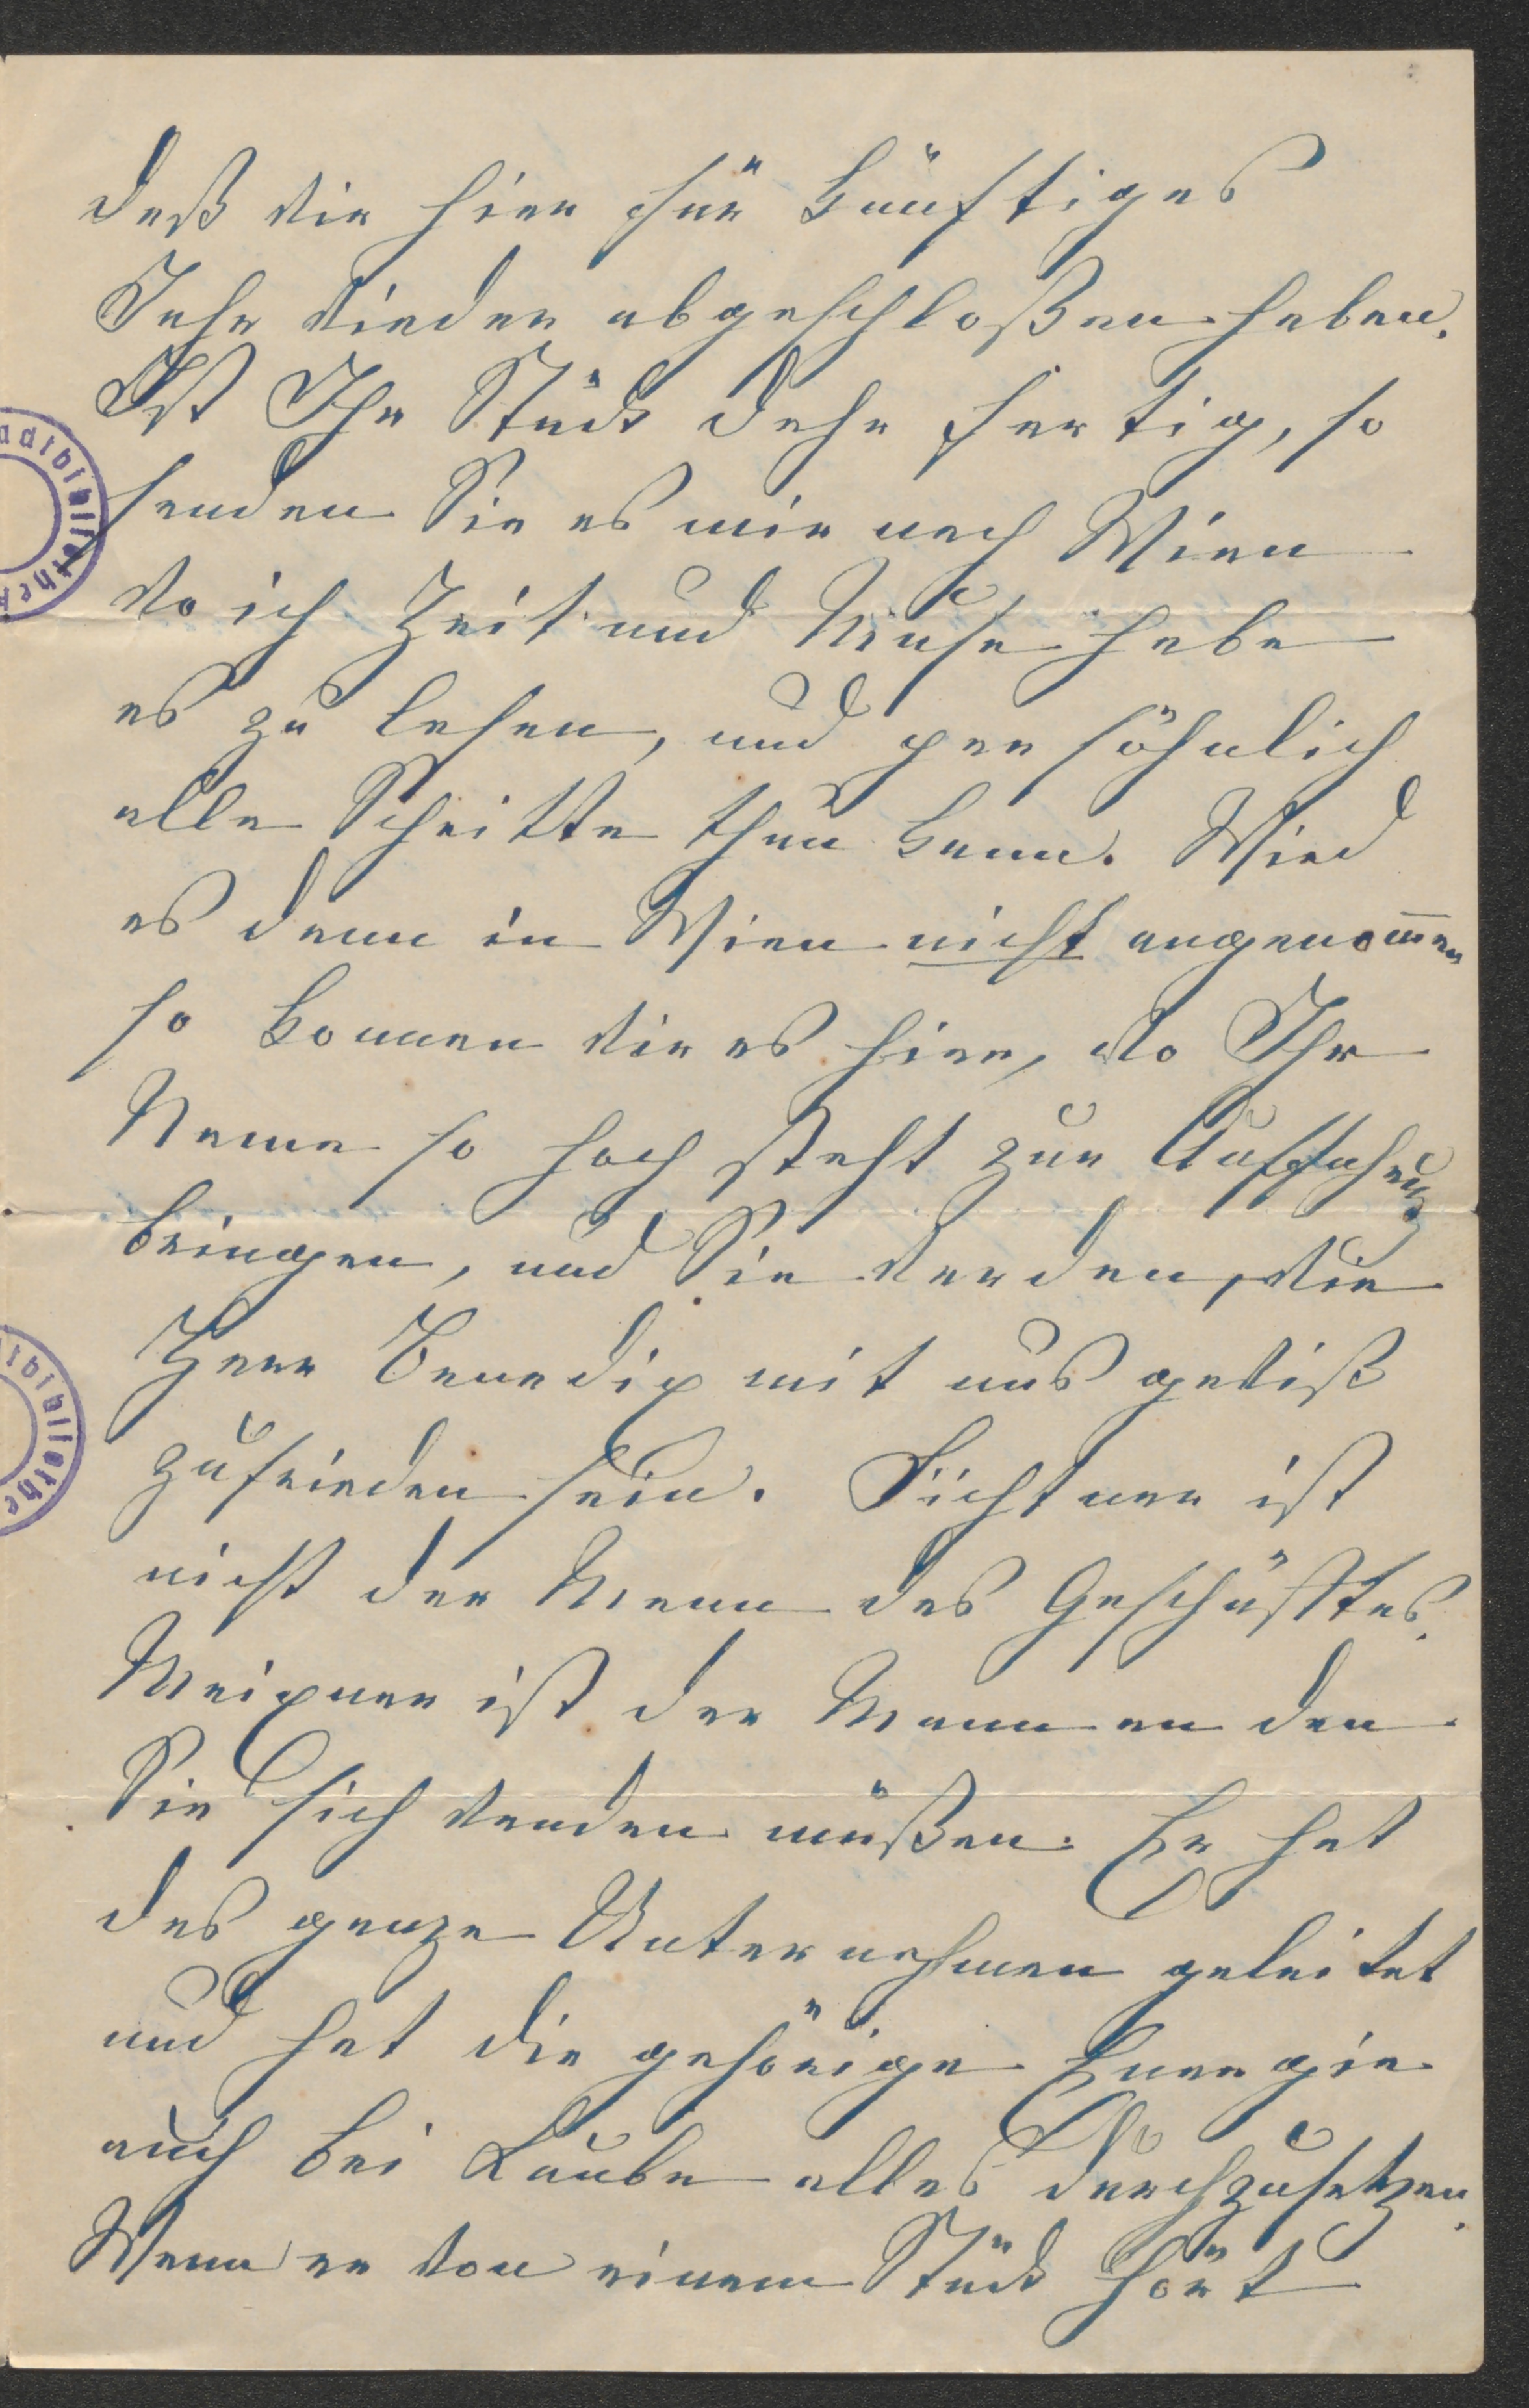 daß wir hier für künftiges
Jahr wieder abgeschloßen haben.
Ist Ihr Stück dahr fertig, so
senden Sie es mir nach Wien
wo ich Zeit und Muse habe
es zu lesen, und persöhnlich
alle Schritte thun kann. Wird
es dann in Wien nicht angenom̅en
so konnen wir es hier, wo Ihr
Name so hoch steht zur Auffuhrung
bringen, und Sie werden, wie
Herr Benedix mit uns gewiß
zufrieden sein. Fichtner ist
nicht der Mann des Geschäfttes.
Meixner ist der Mann an den
Sie sich wenden müßen. Er hat
das ganze Unternehmen geleitet
und hat die gehörige Energie
auch bei Laube alles durchzusetzen.
Wenn er von einem Stück hört
adtbibliothek
tbibliothe